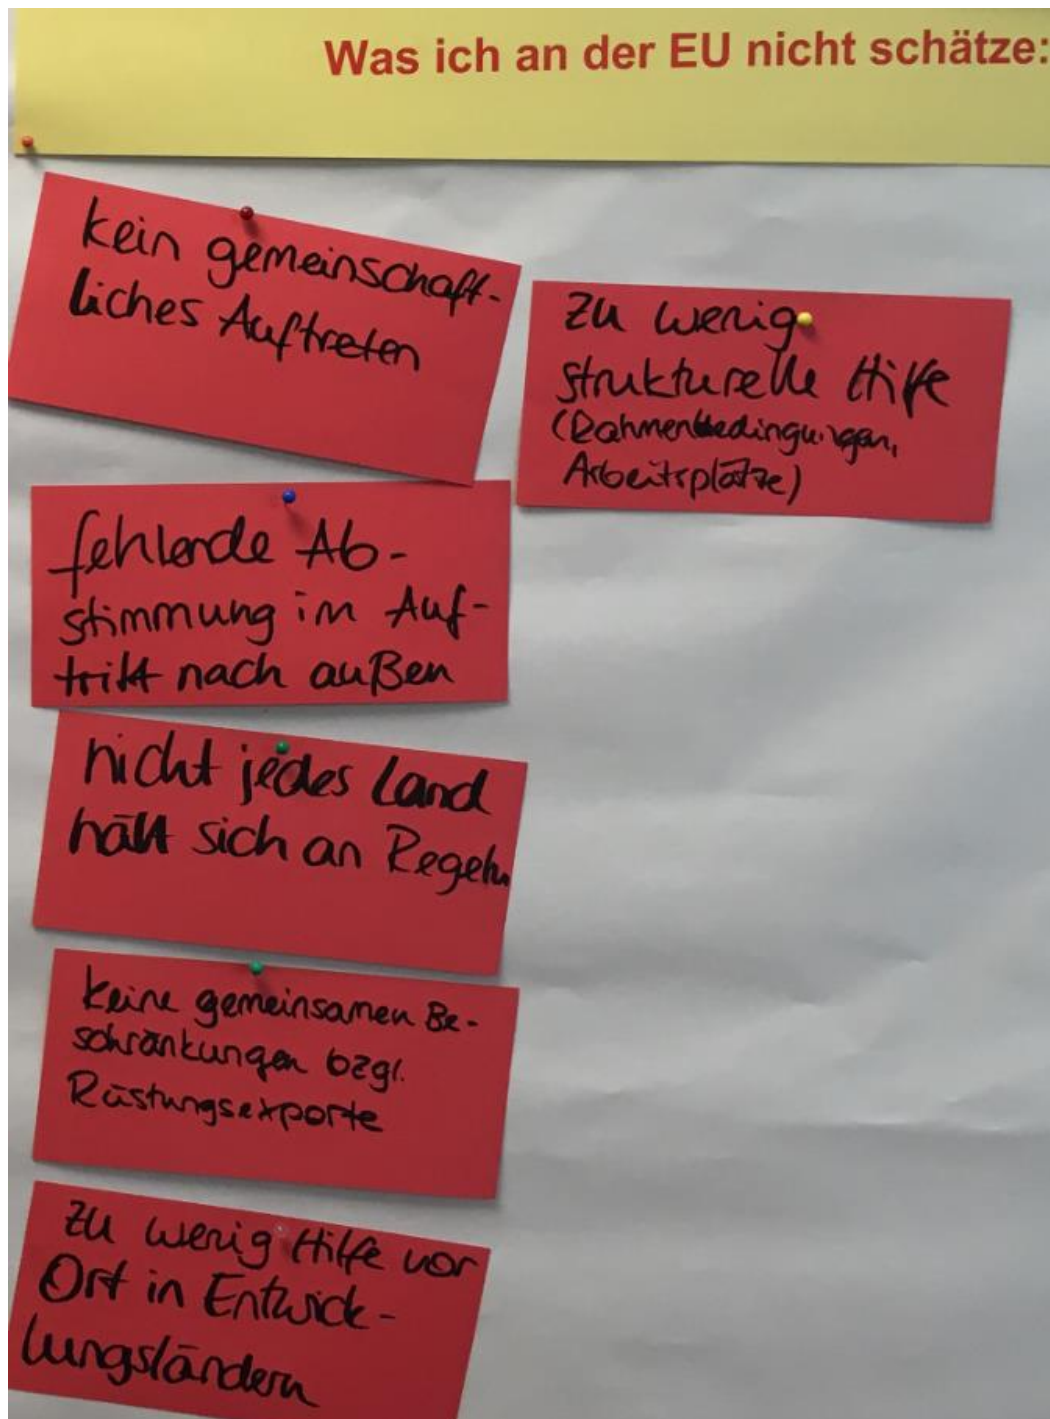 Was ich an der EU nicht schätze:
kein gemeinschaft-
liches Auftreten
fehlende Ab-
stimmung im Auf-
tritt nach außen
nicht jedes Land
hält sich an Regeln
keine gemeinsamen Be-
schränkungen bzgl.
Rüstungsexporte
zu wenig Hilfe vor
Ort in Entwick-
lungsländern
zu wenig
strukturelle Hilfe
(Rahmenbedingungen,
Arbeitsplätze)